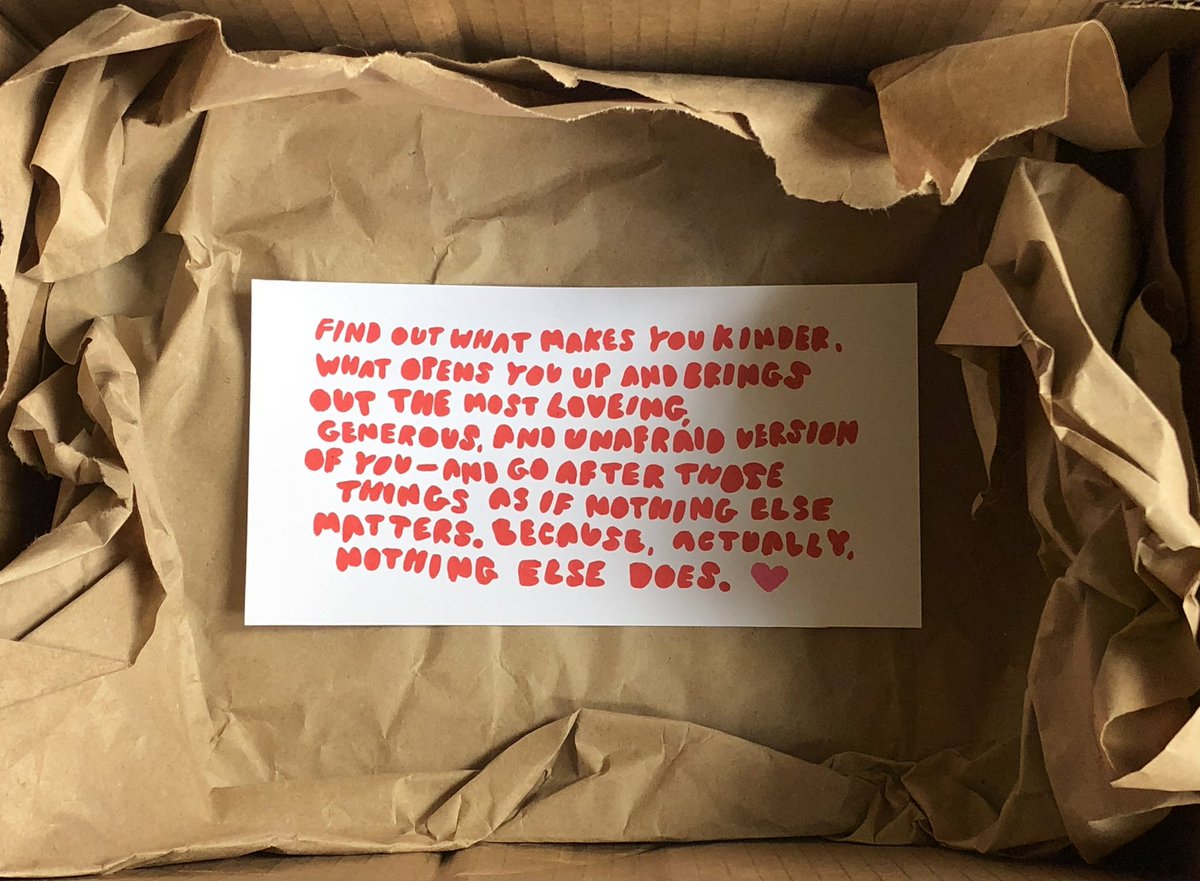 FIND OUT WHAT MAKES YOU KINDER,
WHAT OPENS YOU UP AND BRINGS
OUT THE MOST LOVEING,
GENEROUS, AND UNAFRAID VERSION
OF YOU—AND GO AFTER THOSE
THINGS AS IF NOTHING ELSE
MATTERS. BECAUSE, ACTUALLY,
NOTHING ELSE DOES.